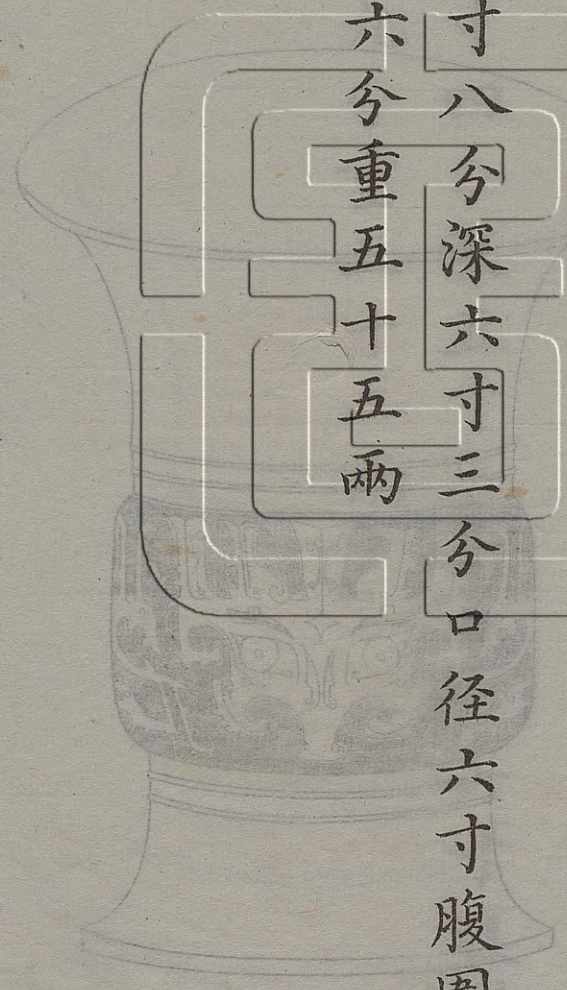 寸八分深六寸三分口径六寸腹圍
六分重五十五兩